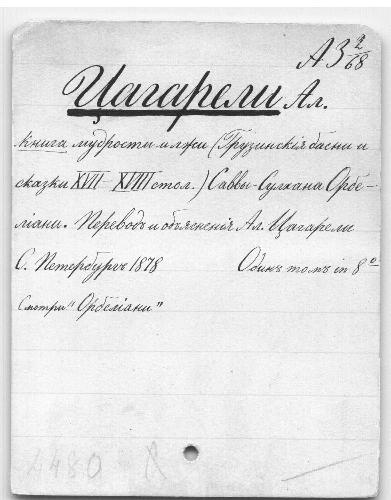 АЗ 2/68
Цагарели Ал.
Книга мудрости и лжи (Грузинскія басни и
сказки XVII–XVIII стол.) Саввы-Сулхана Орбе-
ліани. Переводъ и объясненія Ал. Цагарели
С. Петербургъ 1878 Одинъ томъ in 8º
Смотри "Орбеліани"
4480